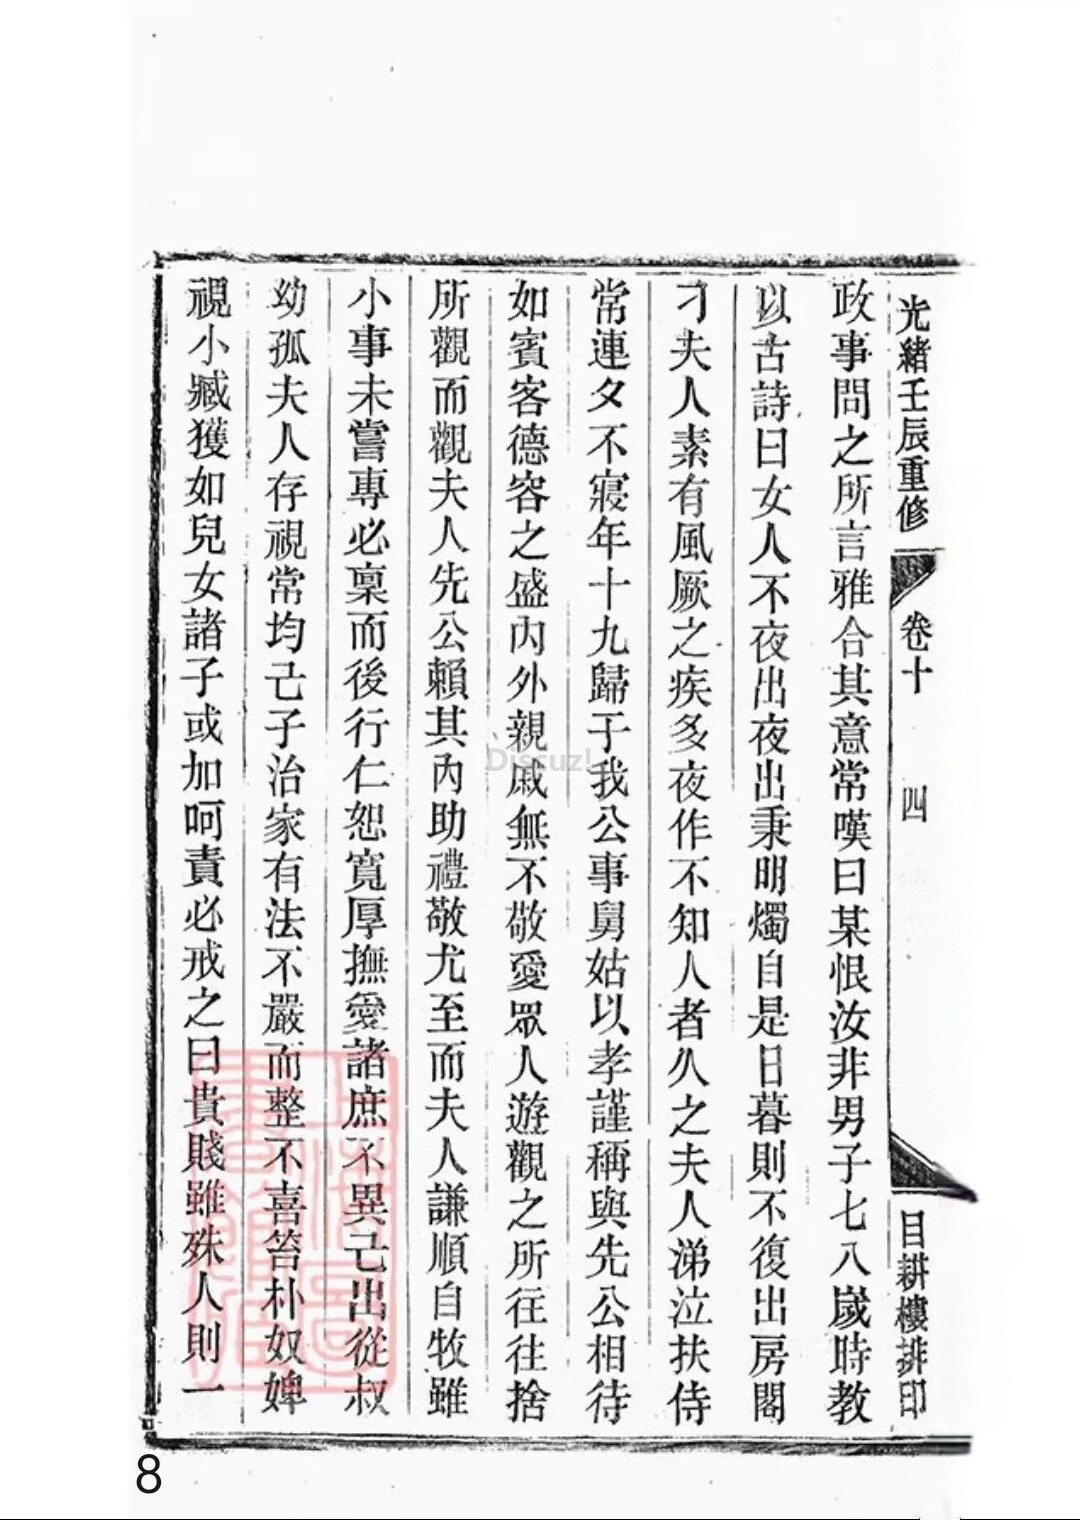 光緒壬辰重修 卷十 四 目耕樓排印
政事問之所言雅合其意常嘆曰某恨汝非男子七八歲時教
以古詩曰女人不夜出夜出秉明燭自是日暮則不復出房閣
刁夫人素有風厥之疾多夜作不知人者久之夫人涕泣扶侍
常連夕不寢年十九歸于我公事舅姑以孝謹稱與先公相待
如賓客德容之盛內外親戚無不敬愛眾人遊觀之所往往捨
所觀而觀夫人先公賴其內助禮敬尤至而夫人謙順自牧雖
小事未嘗專必稟而後行仁恕寬厚撫愛諸庶不異己出從叔
幼孤夫人存視常均己子治家有法不嚴而整不喜笞朴奴婢
視小臧獲如兒女諸子或加呵責必戒之曰貴賤雖殊人則一
Discuz!
8